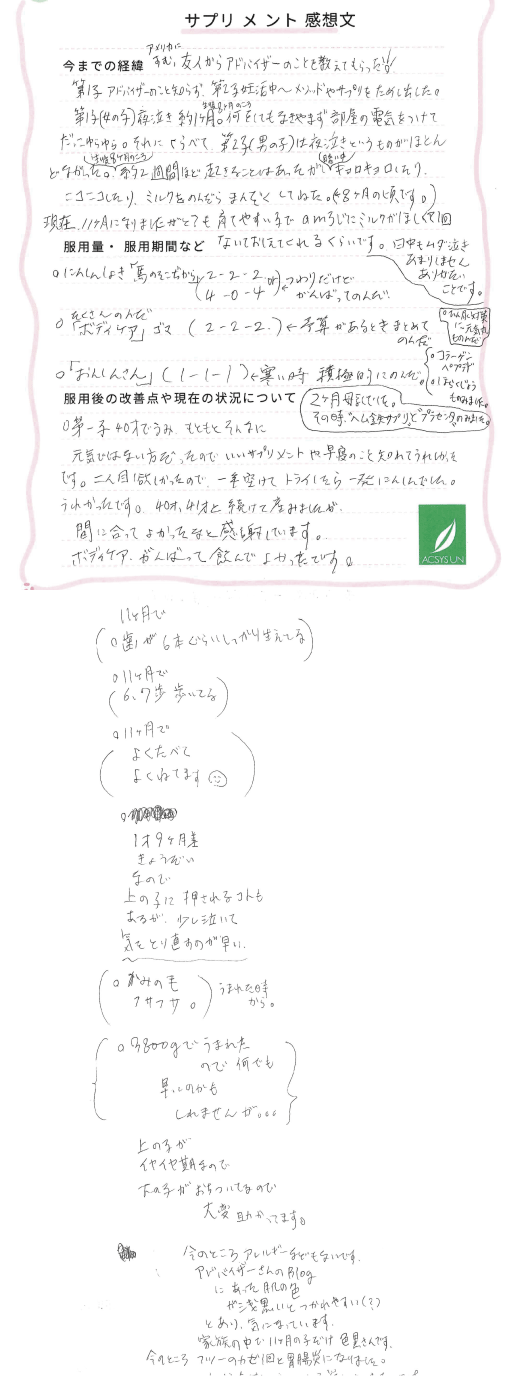 サプリメント感想文
今までの経緯
アメリカに
すむ、友人からアドバイザーのことを教えてもらった!
第1子アドバイザーのこと知らず、第2子妊活中へメソッドやサプリをためし出した。
生後8ヶ月のころ
第1子(4の子)夜泣き約1ヶ月。何をしてもなきやまず部屋の電気をつけて
だっこゆらゆら。それにくらべて、第2子(男の子)は夜泣きというものがほとん
生後8ヶ月のころ
どなかった。約2週間ほど起きることはあったがキョロキョロしたり、
ニコニコしたり、ミルクをのんだらまんぞくしてねた。(8ヶ月の頃です。)
現在、11ヶ月になりましたがとても育てやすい子でam3じにミルクがほしくて1回
服用量・ 服用期間など
ないておしえてくれるくらいです。
日中もムダ泣き
あまりしません
ありがたい
ことです。
○にんしんしょき「馬のそこぢから」
2-2-2
4-0-4
つわりだけど
がんばってのんだ。
○たくさんのんだ
「ボディケア」ゴマ (2-2-2) ←予算があるときまとめて
のんだ
○「おんしんさん」(1-1-1)←寒い時 積極的にのんだ。
○コラーゲン
ペプチド
ものみました。
服用後の改善点や現在の状況について
2ヶ月母乳でした。
その時、ヘム鉄サプリとプラセンタのみました。
○第一子40才でうみ、もともとそんなに
元気ではない方だったのでいいサプリメントや早产のこと知れてうれしかった
です。二人目欲しかったので、一年空けてトライしたら一発にんしんでした。
うれかったです。40才、41才と続けて産みましたが、
間に合ってよかったなと感謝しています。
ボディケア、がんばって飲んでよかったです。
ACSYS UN
11ヶ月で
○歯が6本ぐらいしっかり生えてる
○11ヶ月で
6、7歩歩いてる
○11ヶ月で
よくたべて
よくねてます
1才9ヶ月差
きょうだい
なので
上の子に押されるコトも
あるが、少し泣いて
気をとり直すのが早い。
○かみの毛
フサフサ。
うまれた時
から。
○3800gでうまれた
ので何でも
早いのかも
しれませんが。。。
上の子が
イヤイヤ期なので
下の子がおちついてるので
大変助かってます。
今のところアレルギーなどもないです。
アドバイザーさんのBlog
にあった肌の色
が浅黒いとつかれやすい(?)
とあり、気になっています。
家族の中で11ヶ月の子だけ色黒さんです。
今のところフツーのカゼ1回と胃腸炎になりました。